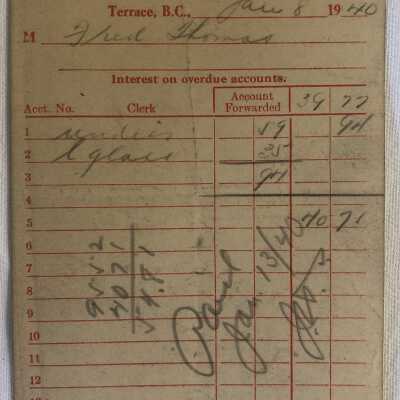 Terrace, B.C., Jan 8 1940
M Fred Thomas
Interest on overdue accounts.
Acct. No. Clerk Account Forwarded 39 77
1 59 94
2 glass 35
3 94
4
5 40 71
6
7
8
9
10
11
12
9552
4071
5481
Paid
Jan. 13/40